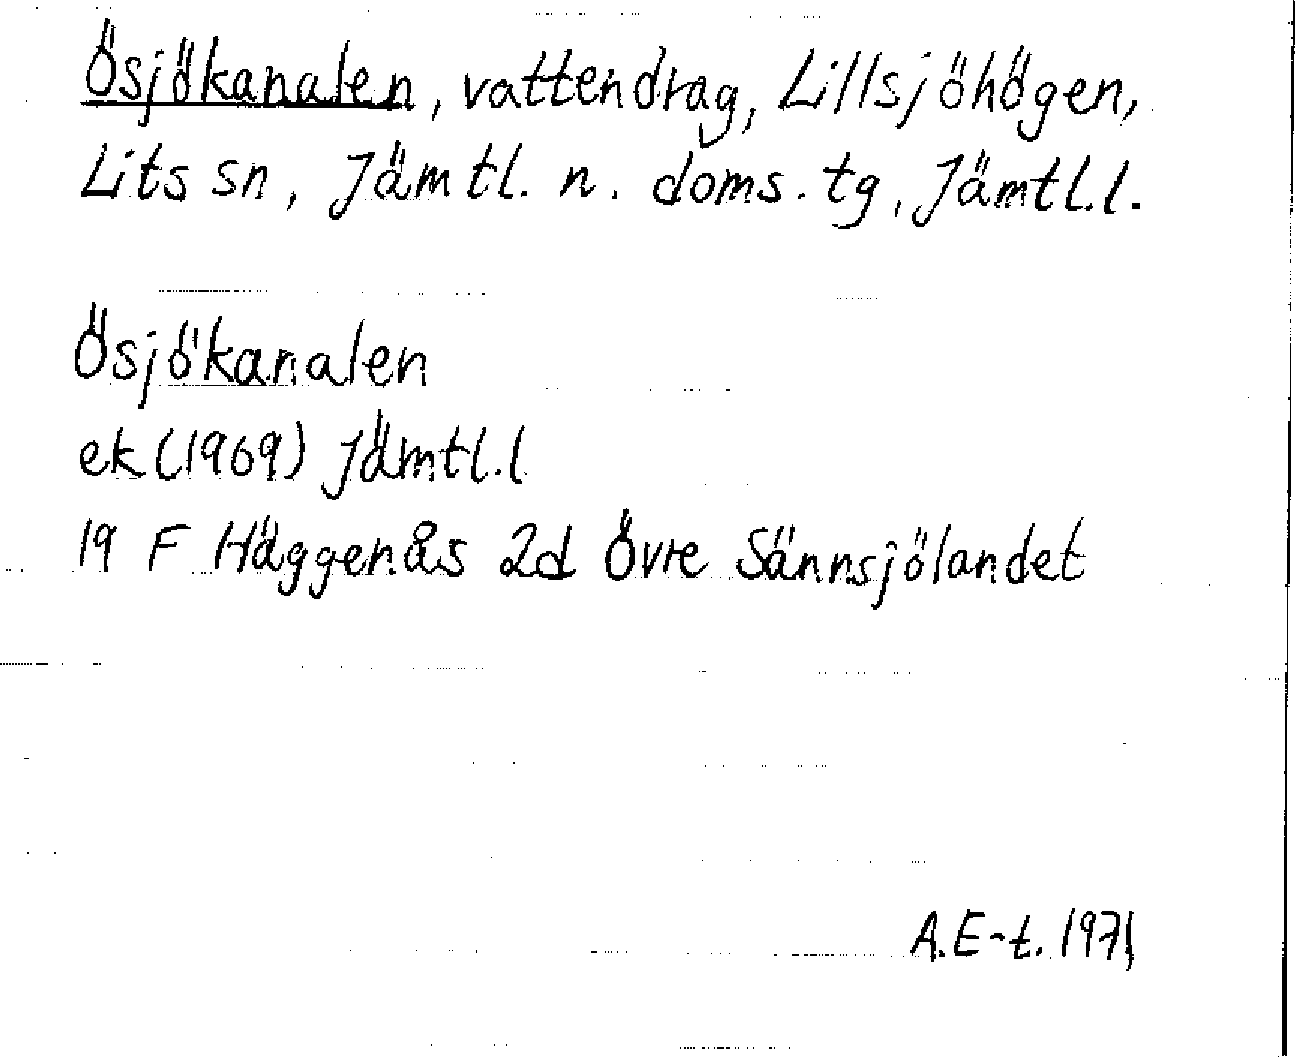 Ösjökanalen, vattendrag, Lillsjöhögen,
Lits sn, Jämtl. n. doms. tg, Jämtl.l.
Ösjökanalen
ek (1969) Jämtl.l
19 F Häggenås 2d Övre Sännsjölandet
A.E-t. 1971